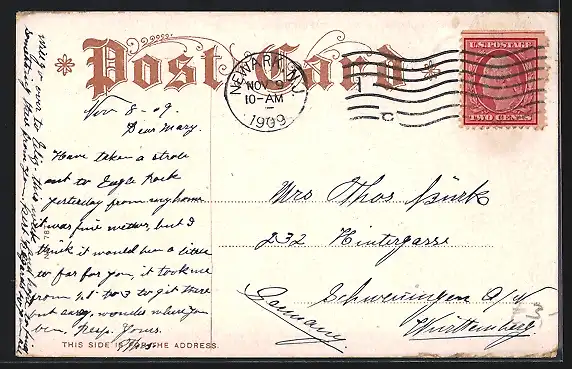 Post Card
NEWARK, N.J.
NOV 9
10-AM
1909
C
U.S. POSTAGE
TWO CENTS
Nov 8-09.
Dear Mary.
Have taken a strole
out to Eagle Rock
yesterday from my home
it was fine wether, but I
think it would be a little
to far for you, it took me
from 1.1 to 3 to git there
but away, wonder where you
ben, Resp. Yours.
THIS SIDE IS FOR THE ADDRESS.
Mrs Thos Bürk
232 Hintergasse
Schwenningen a/N
Württemberg
Germany